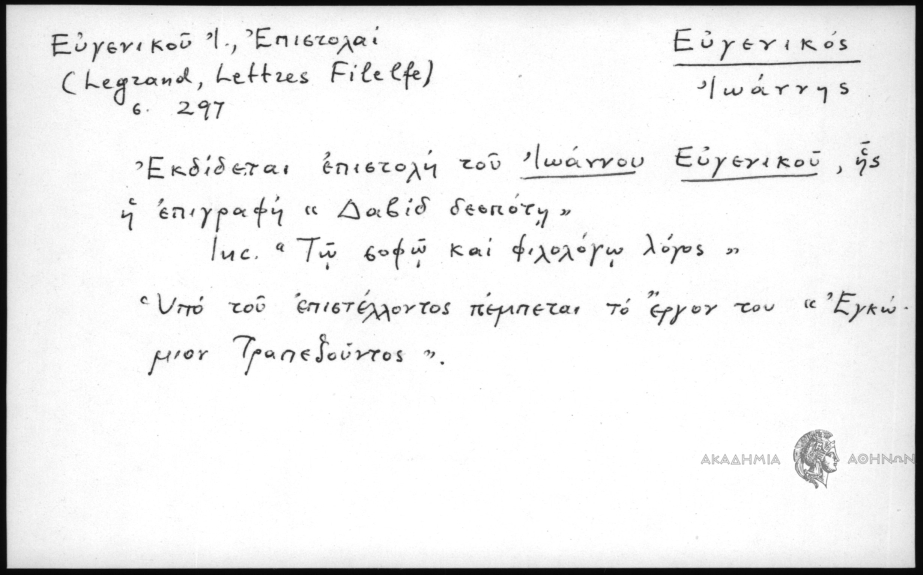 Εὐγενικοῦ Ἰ., Ἐπιστολαί
(Legrand, Lettres Filelfe)
σ. 297
Εὐγενικός
Ἰωάννης
Ἐκδίδεται ἐπιστολή τοῦ Ἰωάννου Εὐγενικοῦ, ἧς
ἡ ἐπιγραφή « Δαβίδ δεσπότῃ »
Inc. « Τῷ σοφῷ καί φιλολόγῳ λόγος »
Ὑπό τοῦ ἐπιστέλλοντος πέμπεται τό ἔργον του « Ἐγκώ-
μιον Τραπεζοῦντος ».
ΑΚΑΔΗΜΙΑ ΑΘΗΝΩΝ